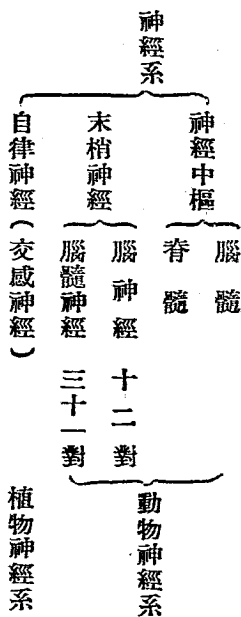 神經系
神經中樞
腦髓
脊髓
末梢神經
腦神經 十二對
腦髓神經 三十一對
自律神經（交感神經）
動物神經系
植物神經系